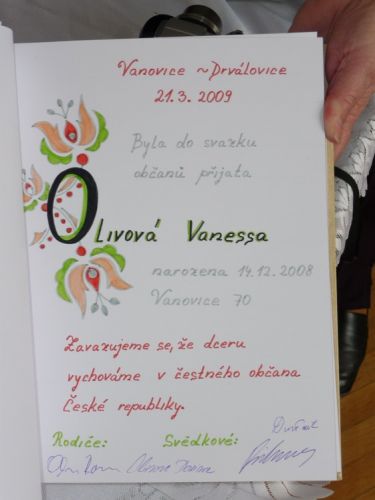 Vanovice ~ Drválovice
21.3. 2009
Byla do svazku
občanů přijata
Olivová Vanessa
narozena 14.12.2008
Vanovice 70
Zavazujeme se, že dceru
vychováme v čestného občana
České republiky.
Rodiče: Svědkové: